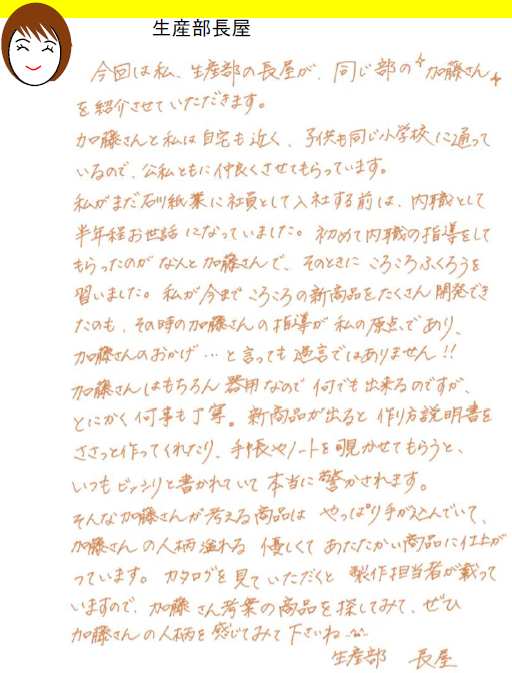 生産部長屋
今回は私、生産部の長屋が、同じ部の“加藤さん”
を紹介させていただきます。
加藤さんと私は自宅も近く、子供も同じ小学校に通って
いるので、公私ともに仲良くさせてもらっています。
私がまだ石川紙業に社員として入社する前は、内職として
半年程お世話になっていました。初めて内職の指導をして
もらったのがなんと加藤さんで、そのときにころころふくろうを
習いました。私が今までころころの新商品をたくさん開発でき
たのも、その時の加藤さんの指導が私の原点であり、
加藤さんのおかげ…と言っても過言ではありません!!
加藤さんはもちろん器用なので何でも出来るのですが、
とにかく何事も丁寧。新商品が出ると作り方説明書を
ささっと作ってくれたり、手帳やノートを覗かせてもらうと、
いつもビッシリと書かれていて本当に驚かされます。
そんな加藤さんが考える商品はやっぱり手が込んでいて、
加藤さんの人柄溢れる優しくてあたたかい商品に仕上が
っています。カタログを見ていただくと製作担当者が載って
いますので、加藤さん考案の商品を探してみて、ぜひ
加藤さんの人柄を感じてみて下さいね
生産部 長屋